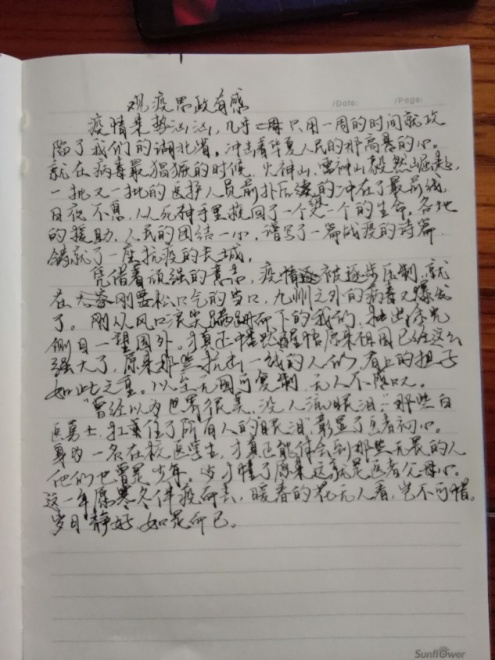 观疫思政有感
/Date: /Page:
疫情来势汹汹,几乎只用一周的时间就攻
陷了我们的湖北省,冲击着华夏人民的那高悬的心。
就在病毒最猖獗的时候,火神山,雷神山毅然崛起,
一批又一批的医护人员前扑后继的冲在了最前线,
日夜不息,从死神手里救回了一个又一个的生命,各地
的援助,人民的团结一心,谱写了一篇战疫的诗篇
铸就了一座抗疫的长城。
凭借着顽强的意志,疫情被逐步压制,就
在大家刚要松口气的当口,九州之外的病毒又爆发
了。刚从风口浪尖下的我们,抽出余光
侧目一望国外。才真正幡然醒悟原来祖国已经这么
强大了,原来那些抗击一线的人们,肩上的担子
如此之重。以至无国可复制,无人不叹服。
"曾经以为世界很美,没人流眼泪"那些白
医勇士,扛责住了所有人的眼泪,彰显了医者初心。
身为一名在校医学生,才真正能体会到那些无畏的人
他们也曾是少年,当才懂了原来这就是医者父母心。
这一年愿寒冬伴疫而去,暖春的花无人看,岂不可惜。
岁月静好,如是而已。
Sunflower